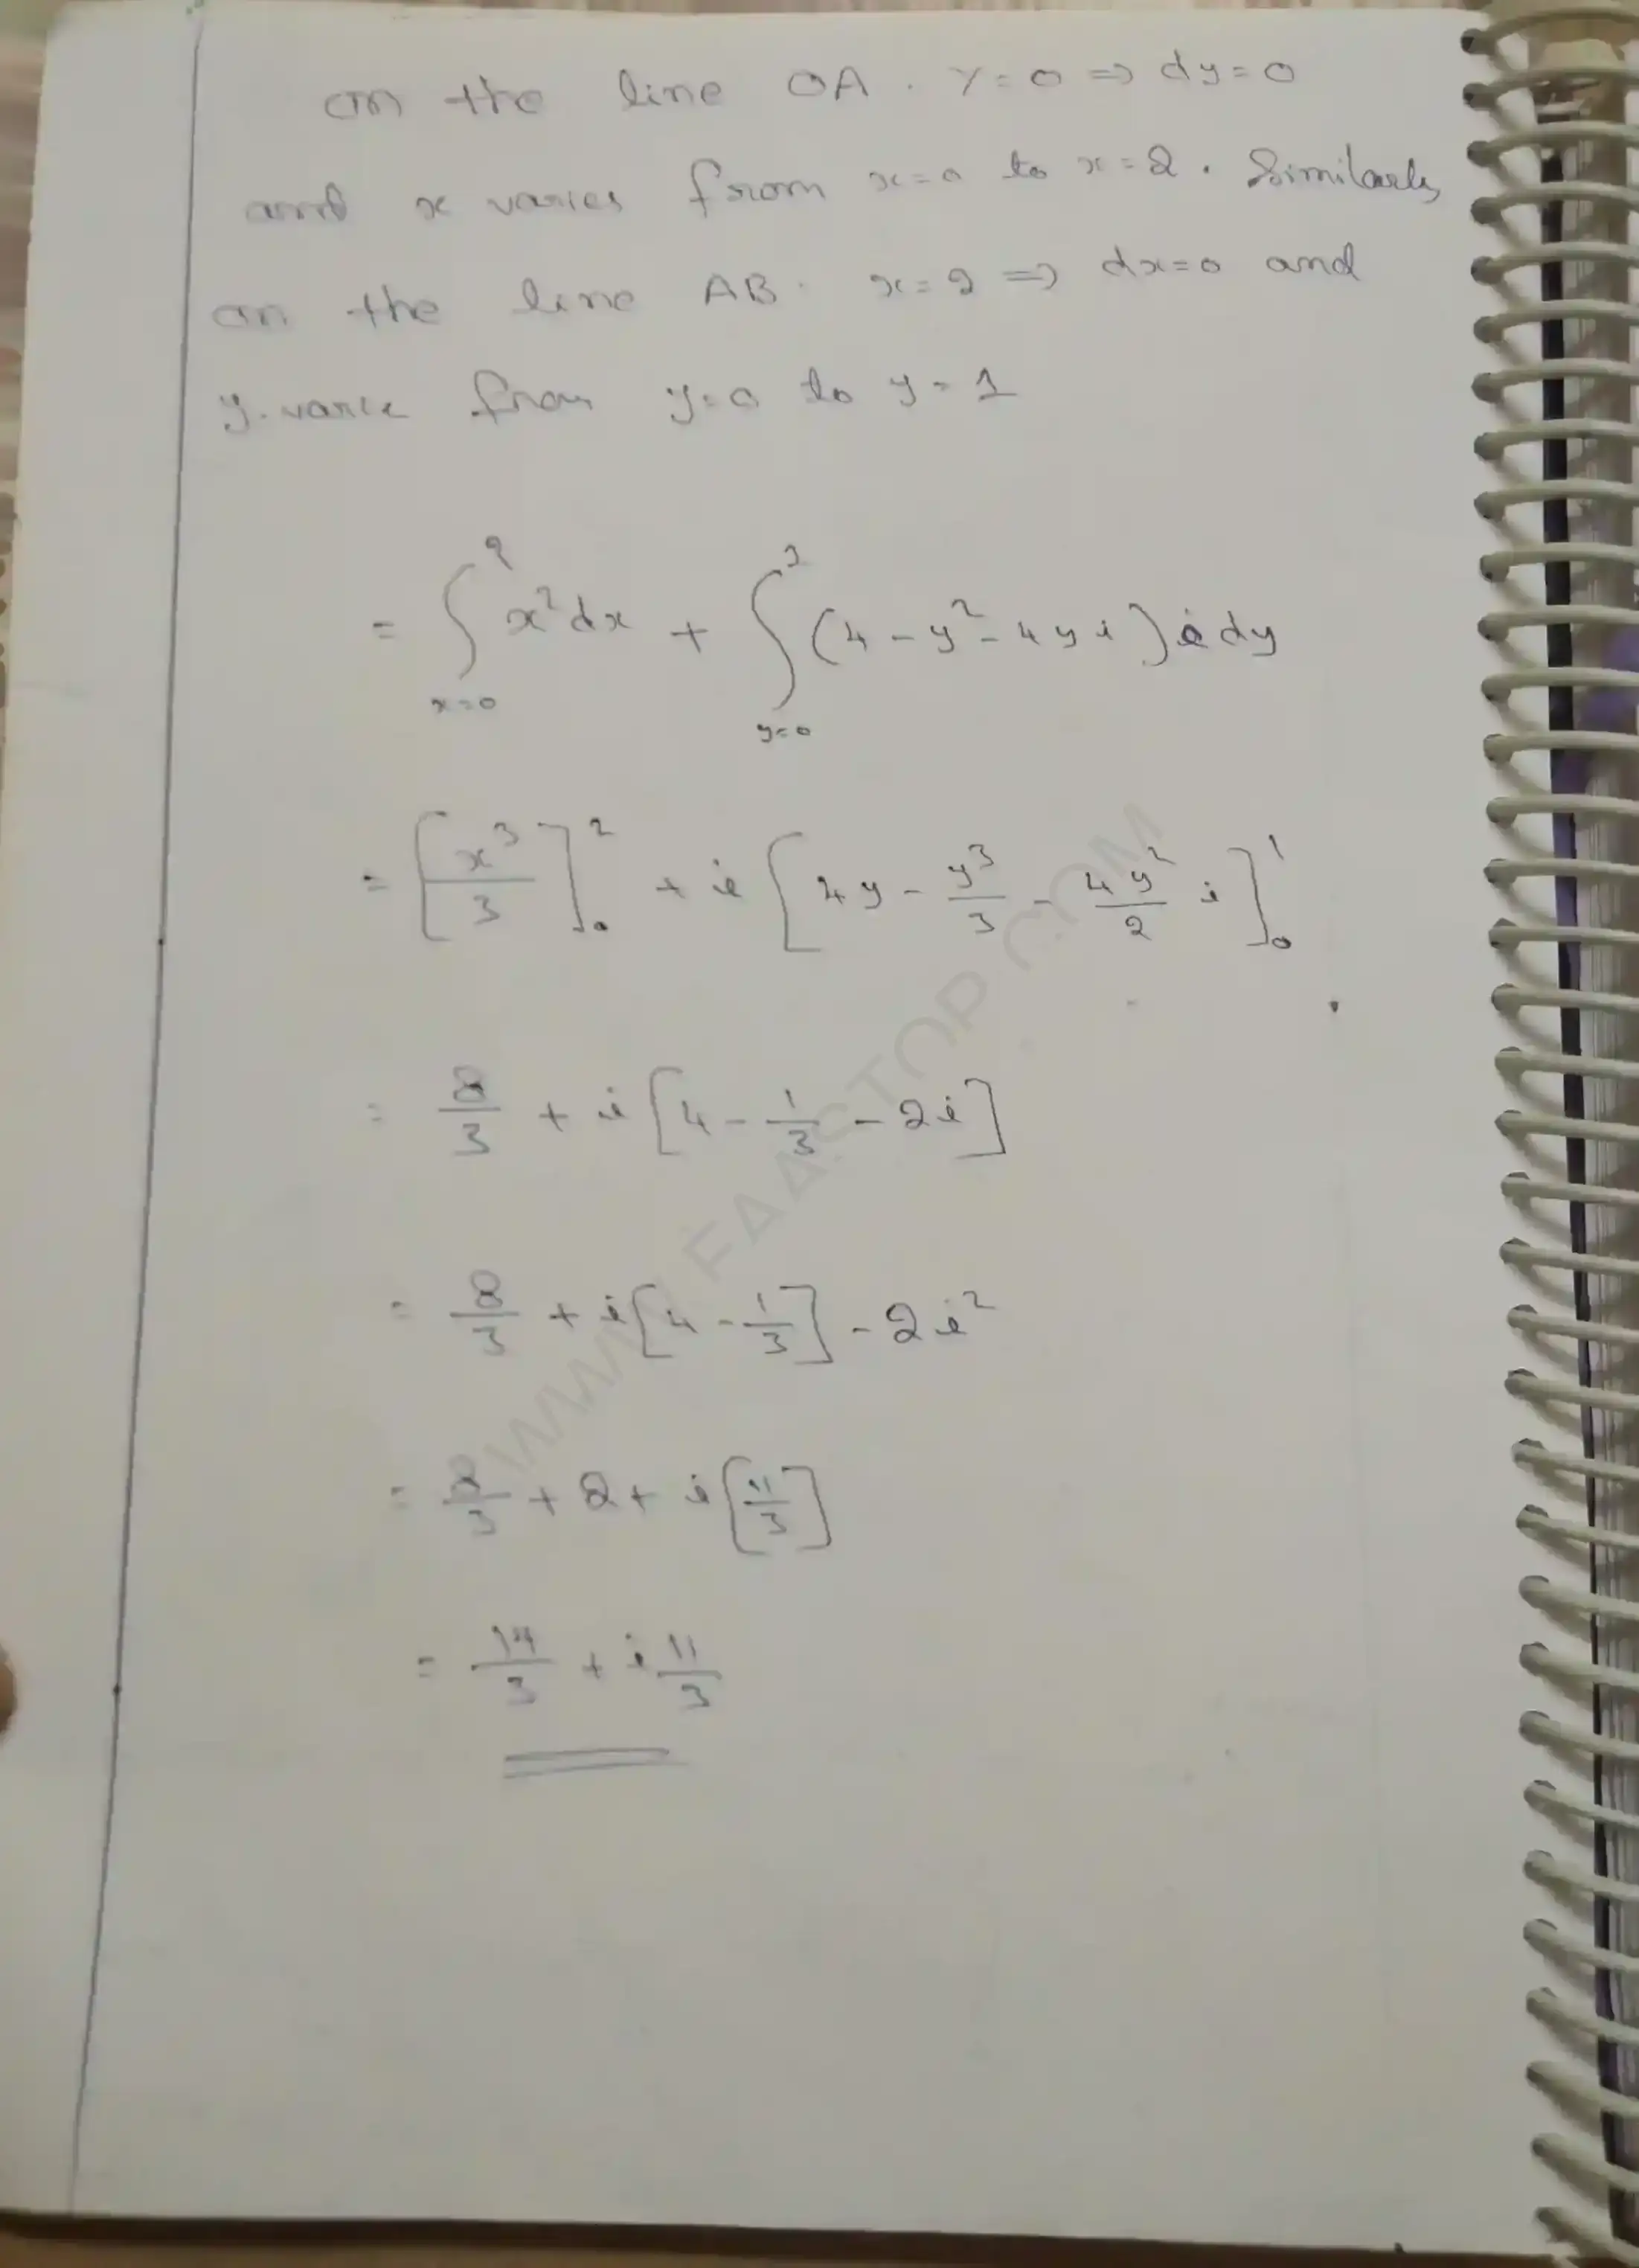 on the line OA. y=0 ⇒ dy=0
and x varies from x=0 to x=2. Similarly
on the line AB. x=2 ⇒ dx=0 and
y. varie from y=0 to y=1
= ∫_{x=0}^{2} x² dx + ∫_{y=0}^{1} (4 - y² - 4yi) i dy
= [x³/3]_0^2 + i [4y - y³/3 - 4y²/2 i]_0^1
= 8/3 + i [4 - 1/3 - 2i]
= 8/3 + i [4 - 1/3] - 2i²
= 8/3 + 2 + i [11/3]
= 14/3 + i 11/3
WWW.FAASTOP.COM